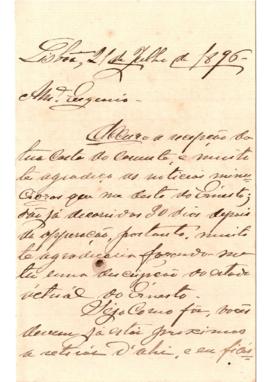 Lisboa, 21 de Julho de 1896
Am.º Eugenio.
Accuso a recepção da
tua carta do corrente, e muito
te agradeço as noticias minu-
ciosas que me deste do Ernesto;
são já decorridos 30 dias depois
da operação, portanto, muito
te agradeceria fazendo-me
tu uma do estado
actual do Ernesto.
Seja como fôr, vocês
devem já estar proximos
a retirar d'ahi, e eu